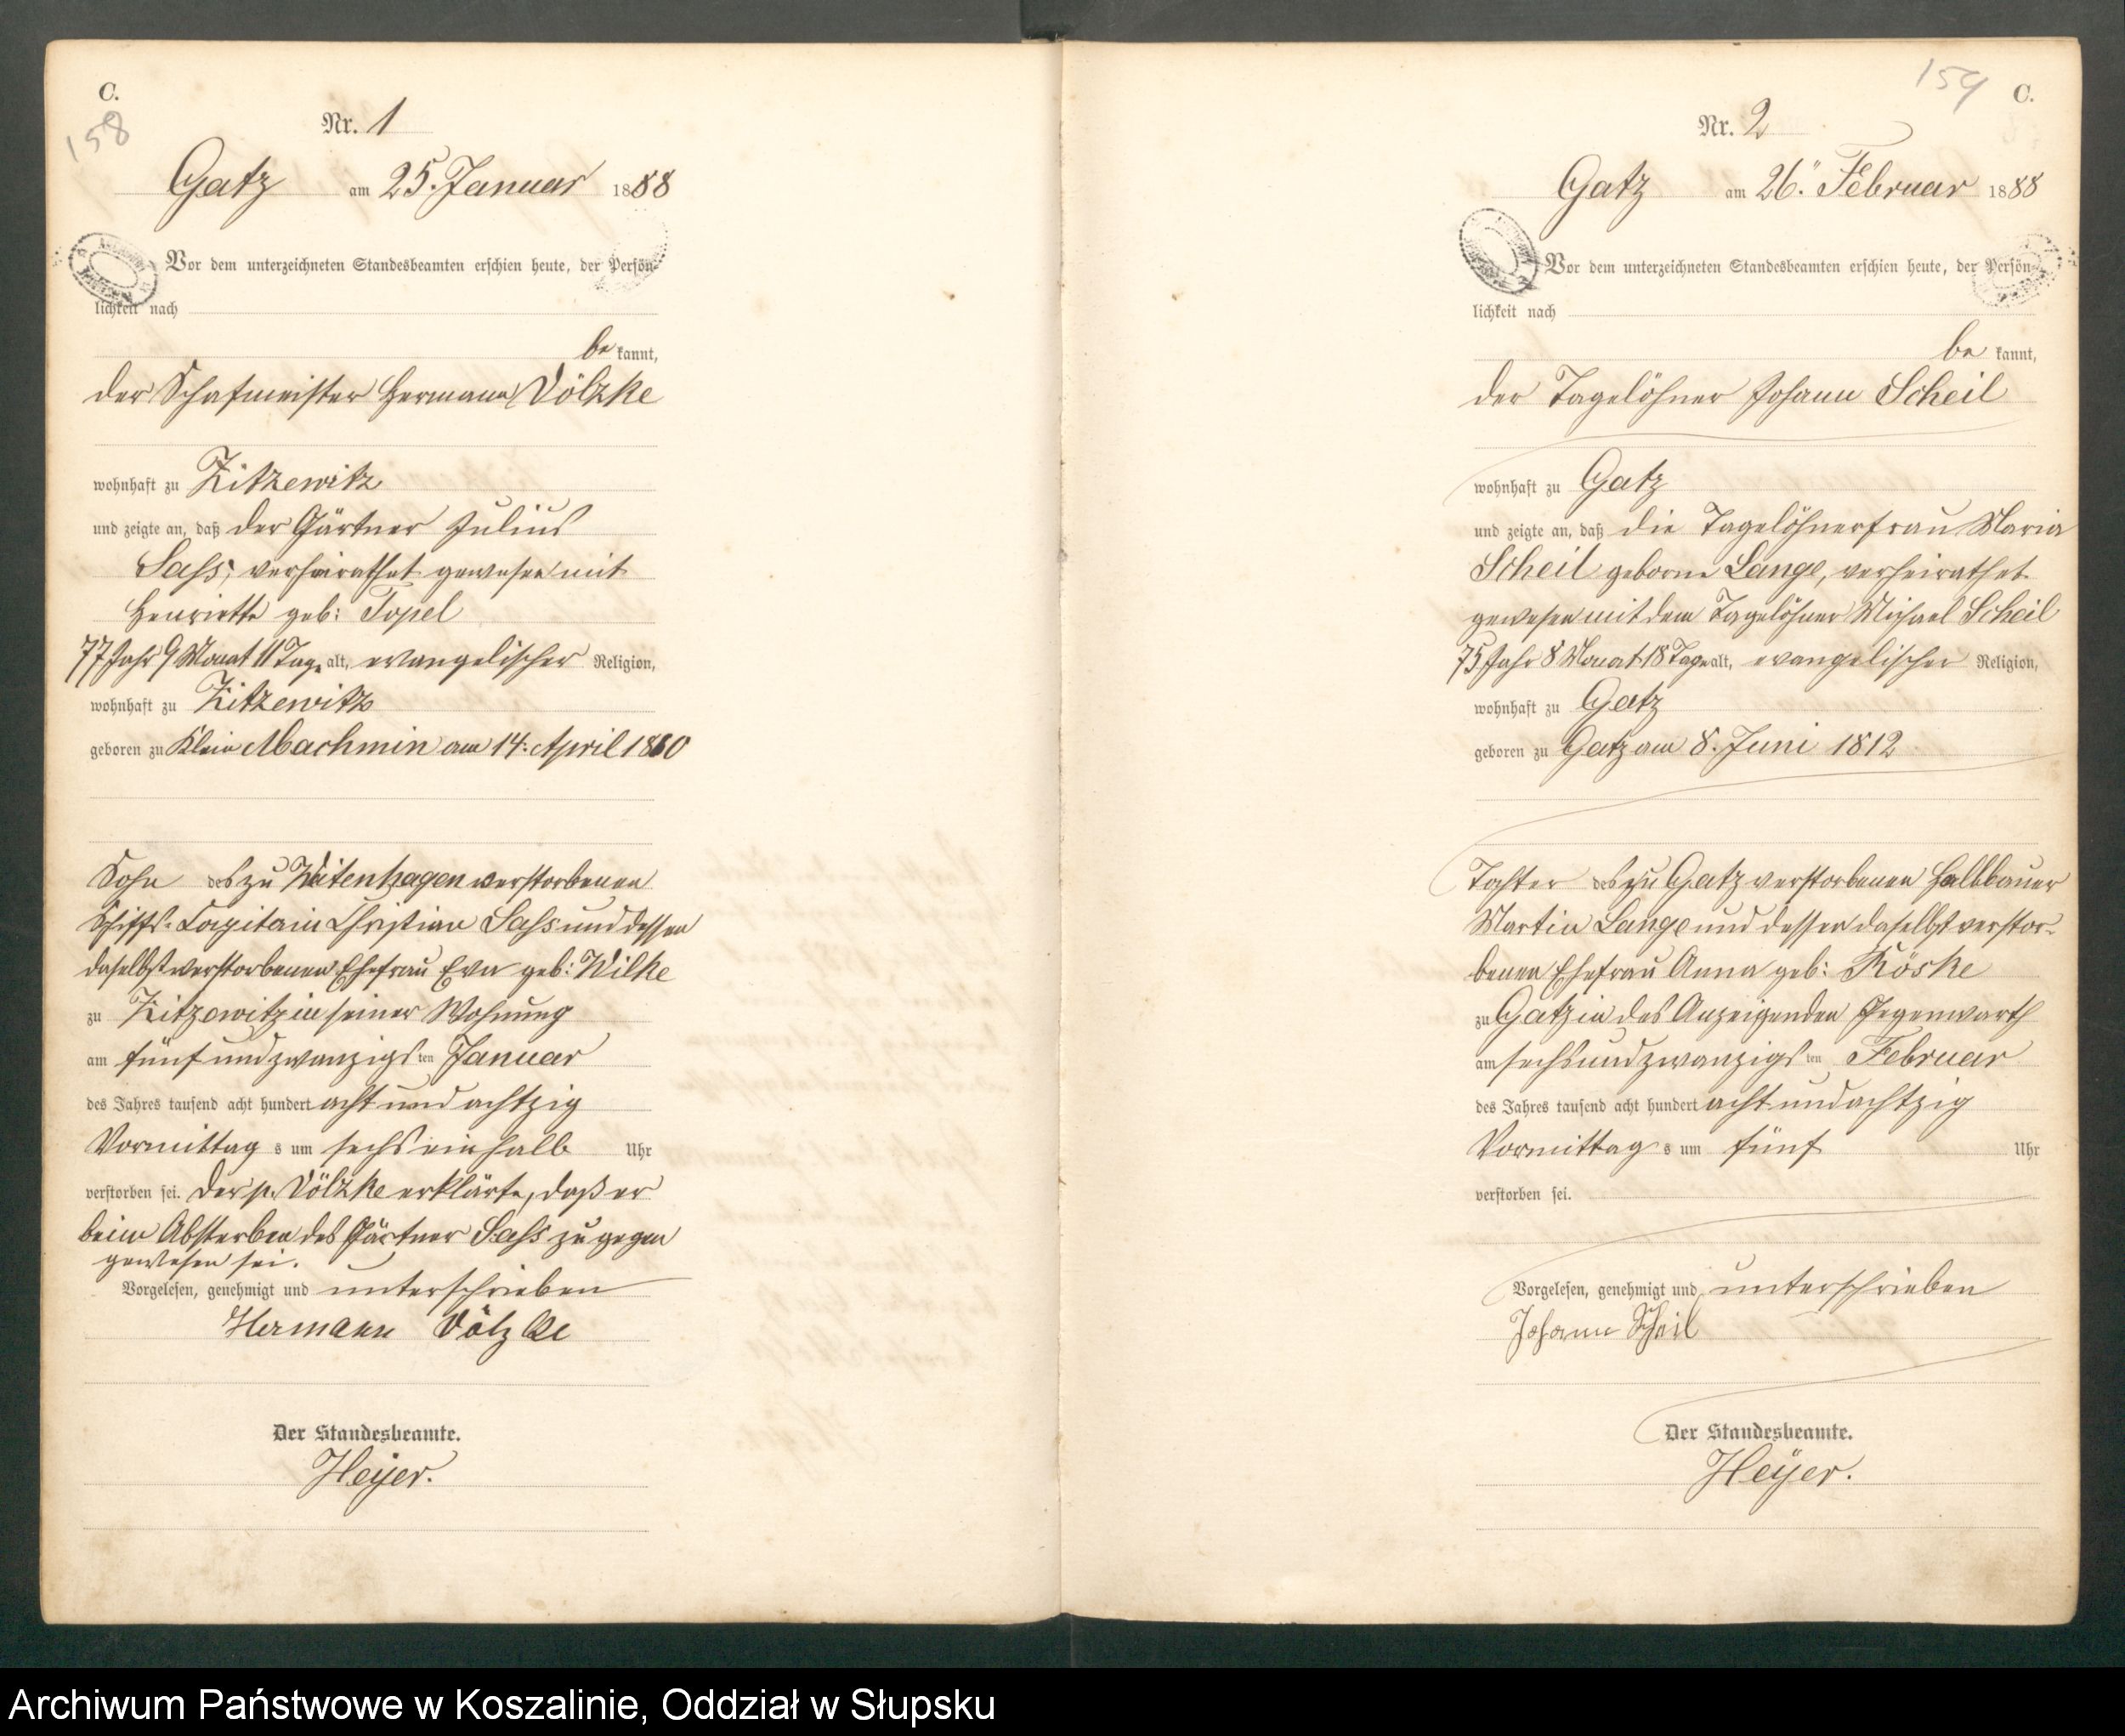 C.
158
Nr. 1
Gatz am 25. Januar 1888
Vor dem unterzeichneten Standesbeamten erschien heute, der Persön-
lichkeit nach
be kannt,
der Schafmeister Hermann Völzke
wohnhaft zu Zitzewitz
und zeigte an, daß der Gärtner Julius
Sass, verheirathet gewesen mit
Henriette geb: Topel
77 Jahr 9 Monat 11 Tage alt, evangelischer Religion,
wohnhaft zu Zitzewitz
geboren zu Klein Machmin am 14. April 1810
Sohn des zu Weitenhagen verstorbenen
Schiffs-Capitain Christian Sass und dessen
daselbst verstorbenen Ehefrau Eva geb: Wilke
zu Zitzewitz in seiner Wohnung
am fünf und zwanzigs ten Januar
des Jahres tausend acht hundert acht und achtzig
Vormittag s um sechs einhalb Uhr
verstorben sei. Der p. Völzke erklärte, daß er
beim Absterben des Gärtner Sass zugegen
gewesen sei.
Vorgelesen, genehmigt und unterschrieben
Hermann Völzke
Der Standesbeamte.
Heyer.
159
C.
Nr. 2
Gatz am 26. Februar 1888
Vor dem unterzeichneten Standesbeamten erschien heute, der Persön-
lichkeit nach
be kannt,
der Tagelöhner Johann Scheil
wohnhaft zu Gatz
und zeigte an, daß die Tagelöhnerfrau Maria
Scheil geborne Lange, verheirathet
gewesen mit dem Tagelöhner Michael Scheil
75 Jahr 8 Monat 18 Tage alt, evangelischer Religion,
wohnhaft zu Gatz
geboren zu Gatz am 8. Juni 1812
Tochter des zu Gatz verstorbenen Halbbauer
Martin Lange und dessen daselbst verstor-
benen Ehefrau Anna geb: Röske
zu Gatz in des Anzeigenden Gegenwarth
am sechsundzwanzigs ten Februar
des Jahres tausend acht hundert acht und achtzig
Vormittag s um fünf Uhr
verstorben sei.
Vorgelesen, genehmigt und unterschrieben
Johann Scheil
Der Standesbeamte.
Heyer.
Archiwum Państwowe w Koszalinie, Oddział w Słupsku